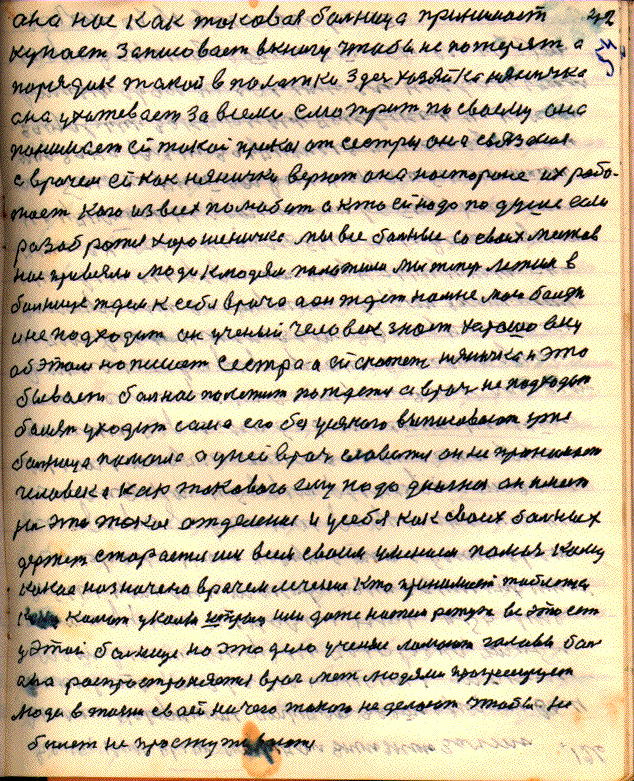 ана нас как таковая балница принимает 42
купает записовает вкнигу чтобы не потерят а
порядик такой в палатки здес хозяйка няничка
ана ухажевает за всеми смотрит по своему она
панимает ей такой приказ от сестры она связана
с врачем ей как нянички вернот она насторане их рабо-
тает кого из всех полюбит а кто ей надо по душе если
разабратся харошеничко мы все балные со своих местов
нас привели люди клюдям палажили мы типер лежим в
балнице ждем к себе врача а он ждет
и не подходит он ученый человек знает харашо ему
об этам напишет сестра а ей скажет няничка и это
бывает балной полежит пождети а врач не подходит
балят уходит сама его без усякого выписовают уже
балница памагла а у ней врач славится он не принимает
человека как такового ему надо диагноз он имеет
на это такое атделения и усебя как своих балных
держит старается их всем своим умением
какое назначено врачем лечения кто принимает таблетки
колют уколы или даже ножем режут все это ест
у этой балнице на это дело учение ламают галавы бал
ана распространяется врач меж людями прогресирует
люди в жизни своей ничего такого не делают чтобы не
балет не простужатся